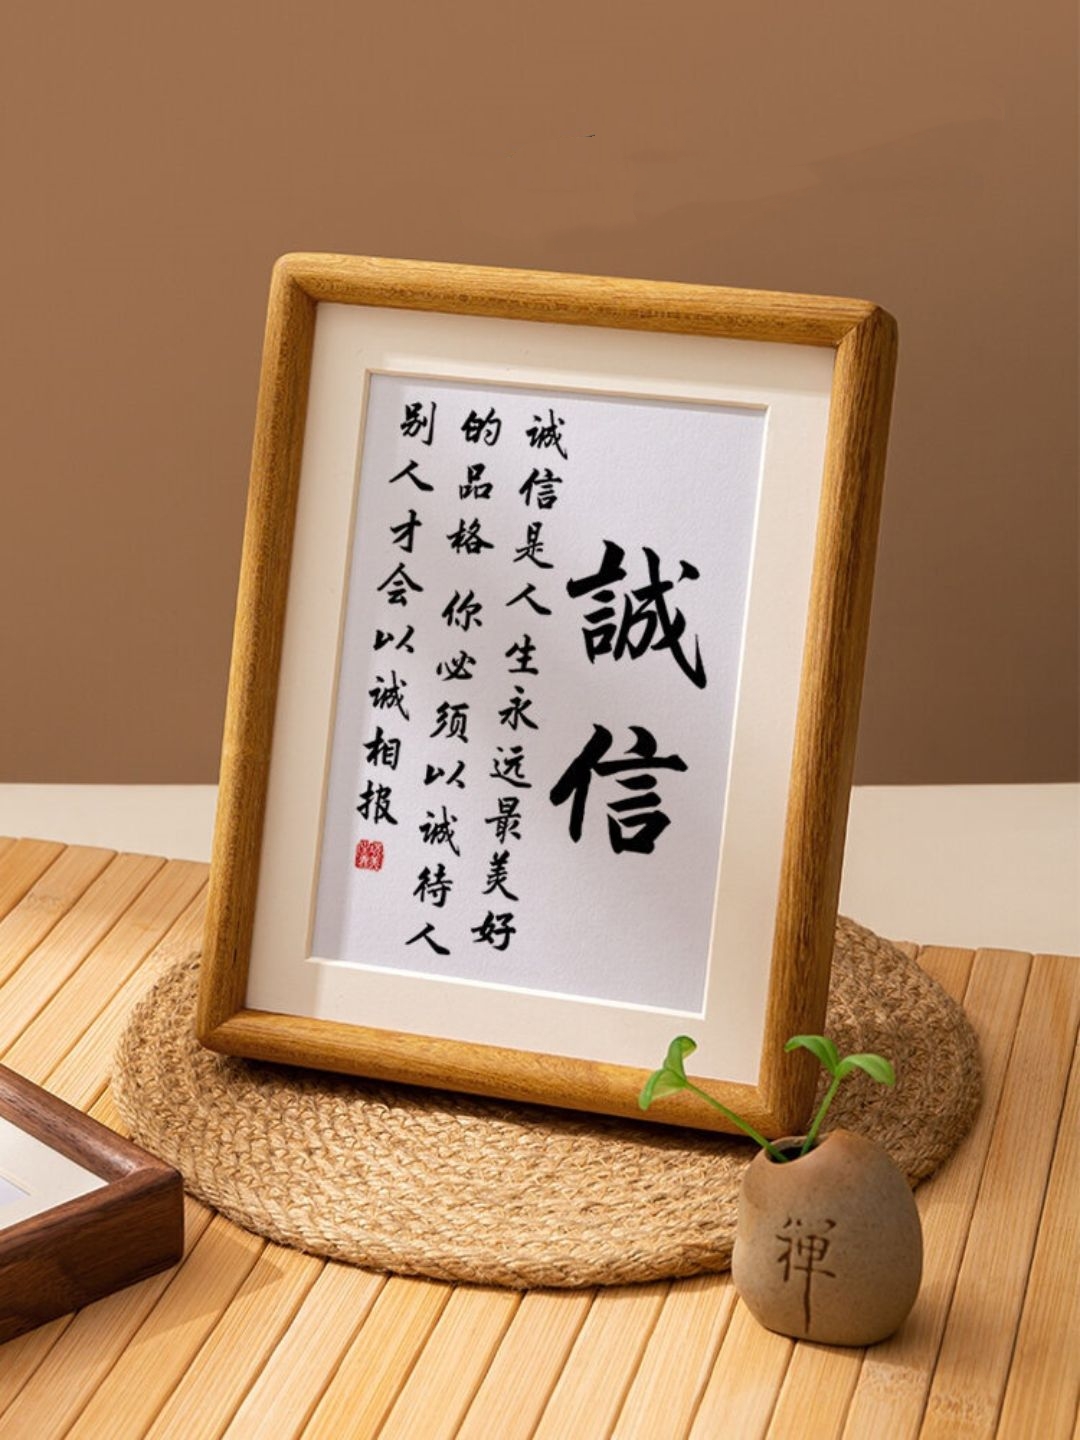 誠信
诚信是人生永远最美好
的品格 你必须以诚待人
别人才会以诚相报
禅